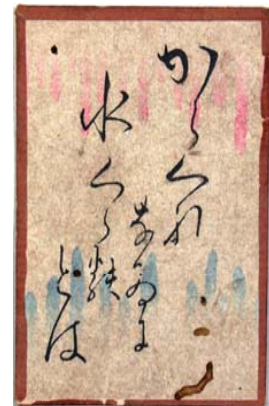 からくれ
なゐに
水くゝる
とは